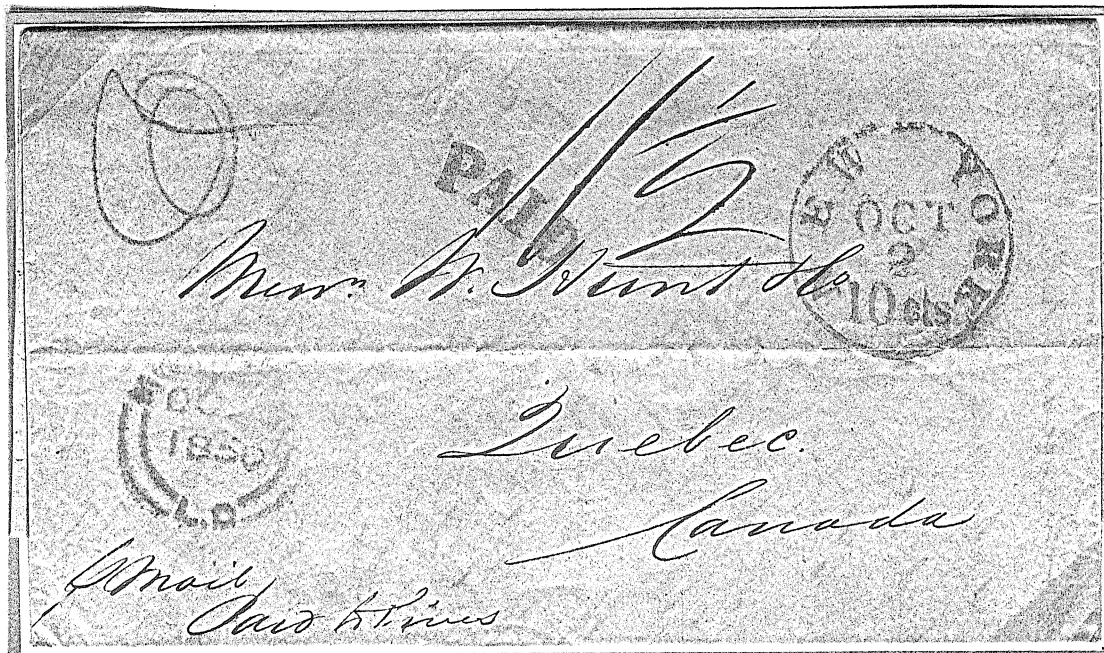 PAID
1/1½
NEW YORK
OCT
2
10 cts
Messrs W. Hunt & Co
1850
L.C
Quebec.
Canada
p Mail
Paid to Lines